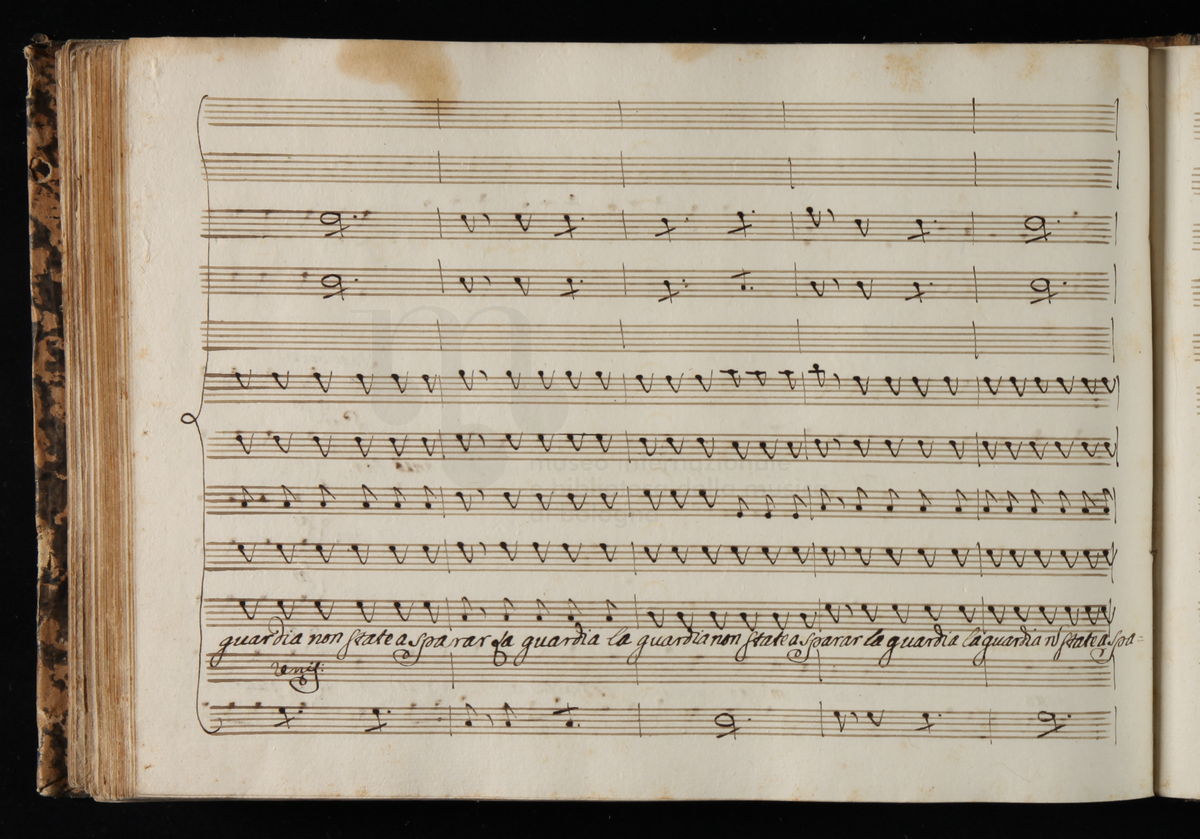 museo internazionale
e biblioteca della musica
di bologna
guardia non state a sparar la guardia la guardia non state a sparar la guardia la guardia n state a spa=